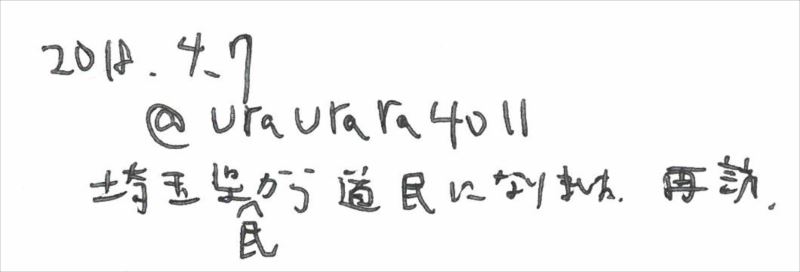 2018.4.7
@uraurara4011
埼玉県民から道民になりました. 再訪.